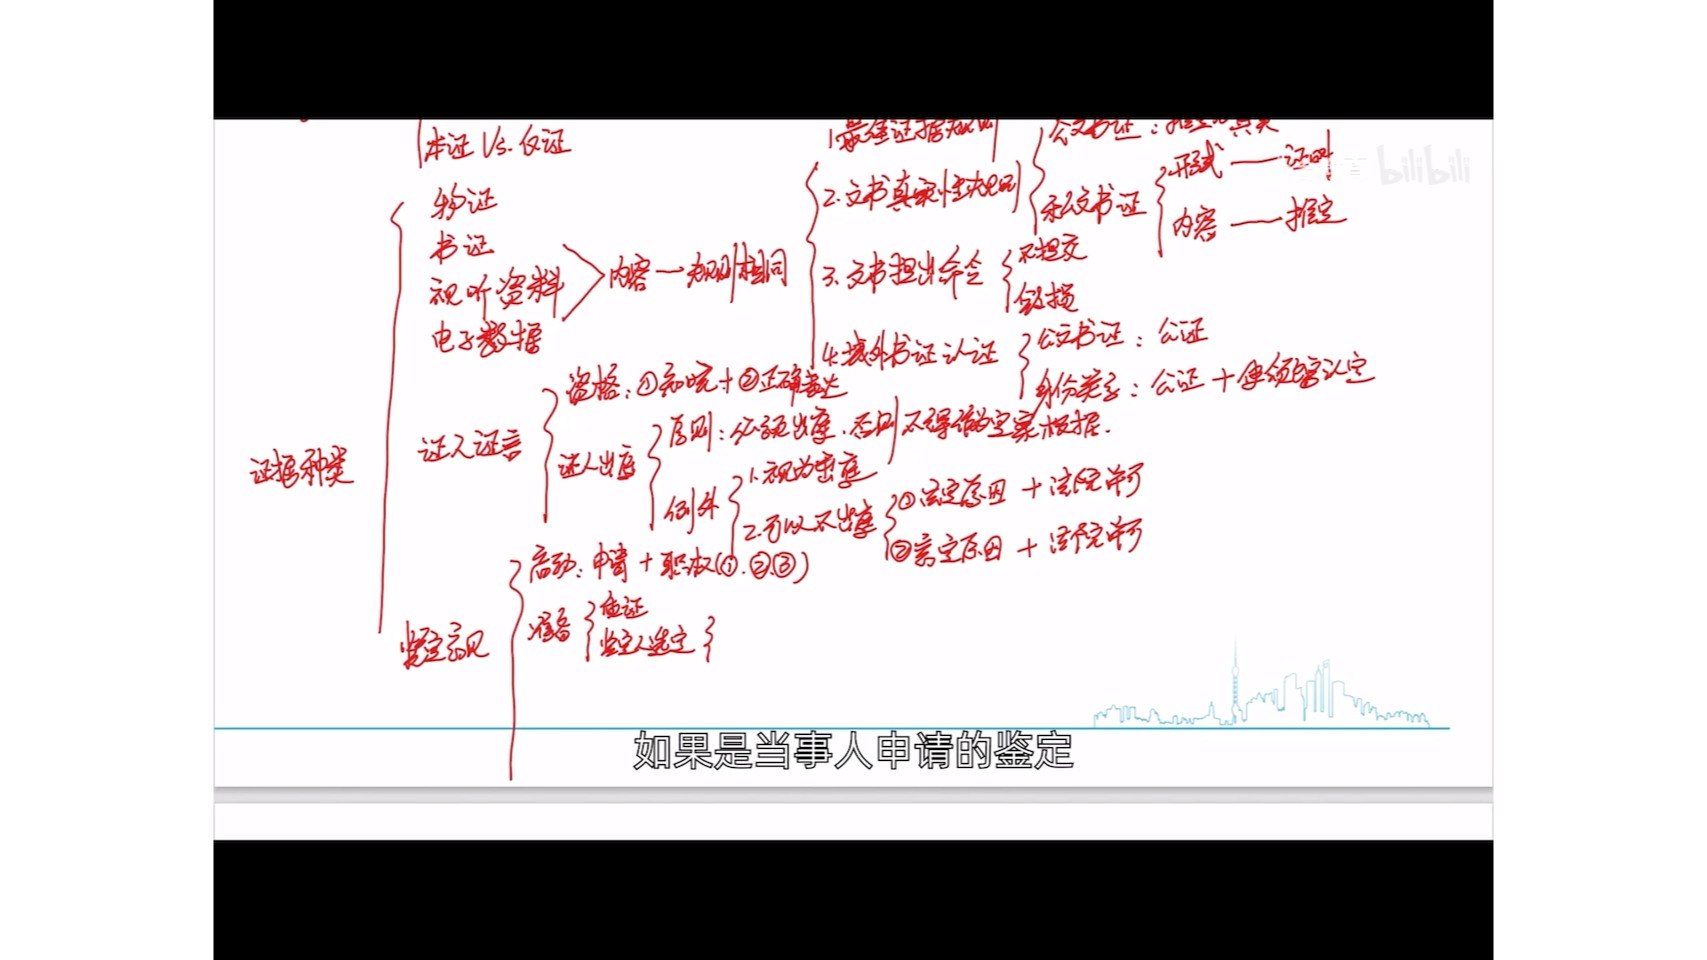 本证 Vs. 反证
1.最佳证据规则
公文书证：推定真实
物证
2.文书真实性规则
形式——证明
私文书证
内容——推定
bilibili
书证
视听资料
电子数据
内容—规则相同
3.文书提出命令
不提交
毁损
4.境外书证认证
公文书证：公证
身份关系：公证+使领馆认定
证据种类
证人证言
资格：①知晓+②正确表达
证人出庭
原则：必须出庭，否则不得作为定案根据.
例外
1.视为出庭
2.可以不出庭
①法定原因+法院许可
②意定原因+法院许可
鉴定意见
启动：申请+职权(①.②.③)
准备
质证
鉴定人选定
如果是当事人申请的鉴定